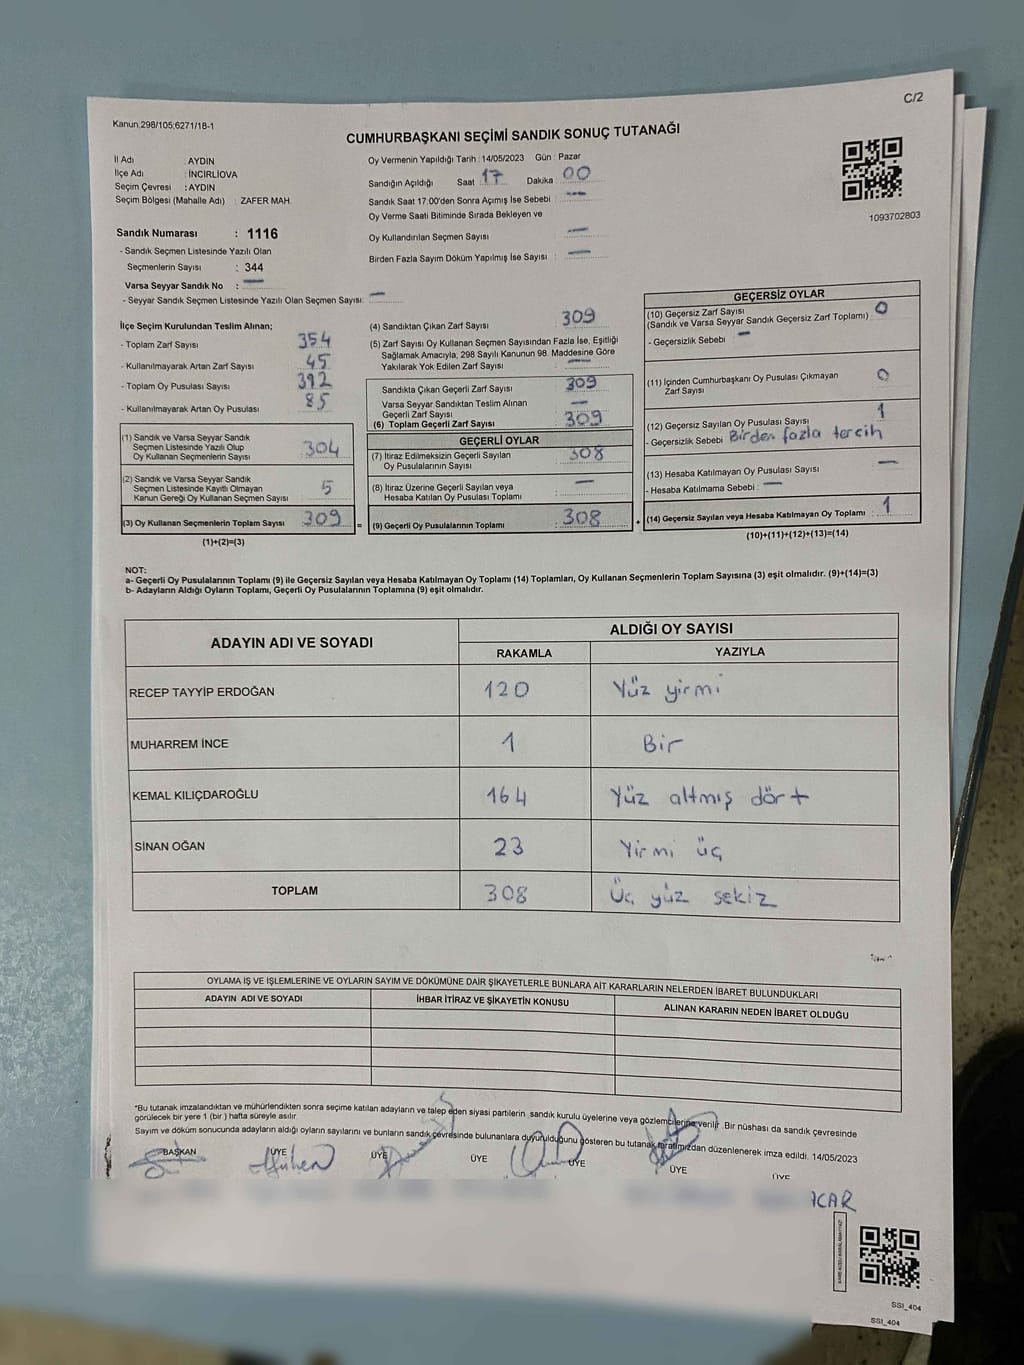 C/2
Kanun,298/105;6271/18-1
CUMHURBAŞKANI SEÇİMİ SANDIK SONUÇ TUTANAĞI
İl Adı : AYDIN
İlçe Adı : İNCİRLİOVA
Seçim Çevresi : AYDIN
Seçim Bölgesi (Mahalle Adı) : ZAFER MAH.
Oy Vermenin Yapıldığı Tarih : 14/05/2023 Gün : Pazar
Sandığın Açıldığı Saat 17 Dakika 00
Sandık Saat 17.00'den Sonra Açımış İse Sebebi : —
Oy Verme Saati Bitiminde Sırada Bekleyen ve
Oy Kullandırılan Seçmen Sayısı : —
Birden Fazla Sayım Döküm Yapılmış İse Sayısı : —
1093702803
Sandık Numarası : 1116
- Sandık Seçmen Listesinde Yazılı Olan
Seçmenlerin Sayısı : 344
Varsa Seyyar Sandık No : —
- Seyyar Sandık Seçmen Listesinde Yazılı Olan Seçmen Sayısı: —
İlçe Seçim Kurulundan Teslim Alınan;
- Toplam Zarf Sayısı : 354
- Kullanılmayarak Artan Zarf Sayısı : 45
- Toplam Oy Pusulası Sayısı : 392
- Kullanılmayarak Artan Oy Pusulası : 85
(1) Sandık ve Varsa Seyyar Sandık
Seçmen Listesinde Yazılı Olup
Oy Kullanan Seçmenlerin Sayısı : 304
(2) Sandık ve Varsa Seyyar Sandık
Seçmen Listesinde Kayıtlı Olmayan
Kanun Gereği Oy Kullanan Seçmen Sayısı : 5
(3) Oy Kullanan Seçmenlerin Toplam Sayısı : 309
(1)+(2)=(3)
(4) Sandıktan Çıkan Zarf Sayısı : 309
(5) Zarf Sayısı Oy Kullanan Seçmen Sayısından Fazla İse, Eşitliği
Sağlamak Amacıyla, 298 Sayılı Kanunun 98. Maddesine Göre
Yakılarak Yok Edilen Zarf Sayısı : —
Sandıkta Çıkan Geçerli Zarf Sayısı : 309
Varsa Seyyar Sandıktan Teslim Alınan
Geçerli Zarf Sayısı : —
(6) Toplam Geçerli Zarf Sayısı : 309
GEÇERLİ OYLAR
(7) İtiraz Edilmeksizin Geçerli Sayılan
Oy Pusulalarının Sayısı : 308
(8) İtiraz Üzerine Geçerli Sayılan veya
Hesaba Katılan Oy Pusulası Toplamı : —
= (9) Geçerli Oy Pusulalarının Toplamı : 308
GEÇERSİZ OYLAR
(10) Geçersiz Zarf Sayısı : 0
(Sandık ve Varsa Seyyar Sandık Geçersiz Zarf Toplamı)
- Geçersizlik Sebebi : —
(11) İçinden Cumhurbaşkanı Oy Pusulası Çıkmayan
Zarf Sayısı : 0
(12) Geçersiz Sayılan Oy Pusulası Sayısı : 1
- Geçersizlik Sebebi : Birden fazla tercih
(13) Hesaba Katılmayan Oy Pusulası Sayısı : —
- Hesaba Katılmama Sebebi : —
+ (14) Geçersiz Sayılan veya Hesaba Katılmayan Oy Toplamı : 1
(10)+(11)+(12)+(13)=(14)
NOT:
a- Geçerli Oy Pusulalarının Toplamı (9) ile Geçersiz Sayılan veya Hesaba Katılmayan Oy Toplamı (14) Toplamları, Oy Kullanan Seçmenlerin Toplam Sayısına (3) eşit olmalıdır. (9)+(14)=(3)
b- Adayların Aldığı Oyların Toplamı, Geçerli Oy Pusulalarının Toplamına (9) eşit olmalıdır.
ADAYIN ADI VE SOYADI
ALDIĞI OY SAYISI
RAKAMLA YAZIYLA
RECEP TAYYİP ERDOĞAN 120 Yüz yirmi
MUHARREM İNCE 1 Bir
KEMAL KILIÇDAROĞLU 164 Yüz altmış dört
SİNAN OĞAN 23 Yirmi üç
TOPLAM 308 Üç yüz sekiz
OYLAMA İŞ VE İŞLEMLERİNE VE OYLARIN SAYIM VE DÖKÜMÜNE DAİR ŞİKAYETLERLE BUNLARA AİT KARARLARIN NELERDEN İBARET BULUNDUKLARI
ADAYIN ADI VE SOYADI İHBAR İTİRAZ VE ŞİKAYETİN KONUSU ALINAN KARARIN NEDEN İBARET OLDUĞU
*Bu tutanak imzalandıktan ve mühürlendikten sonra seçime katılan adayların ve talep eden siyasi partilerin sandık kurulu üyelerine veya gözlemcilerine verilir. Bir nüshası da sandık çevresinde
görülecek bir yere 1 (bir ) hafta süreyle asılır.
Sayım ve döküm sonucunda adayların aldığı oyların sayılarını ve bunların sandık çevresinde bulunanlara duyurulduğunu gösteren bu tutanak tarafımızdan düzenlenerek imza edildi. 14/05/2023
BAŞKAN ÜYE ÜYE ÜYE ÜYE ÜYE ÜYE
ACAR
SSI_404
SSI_404